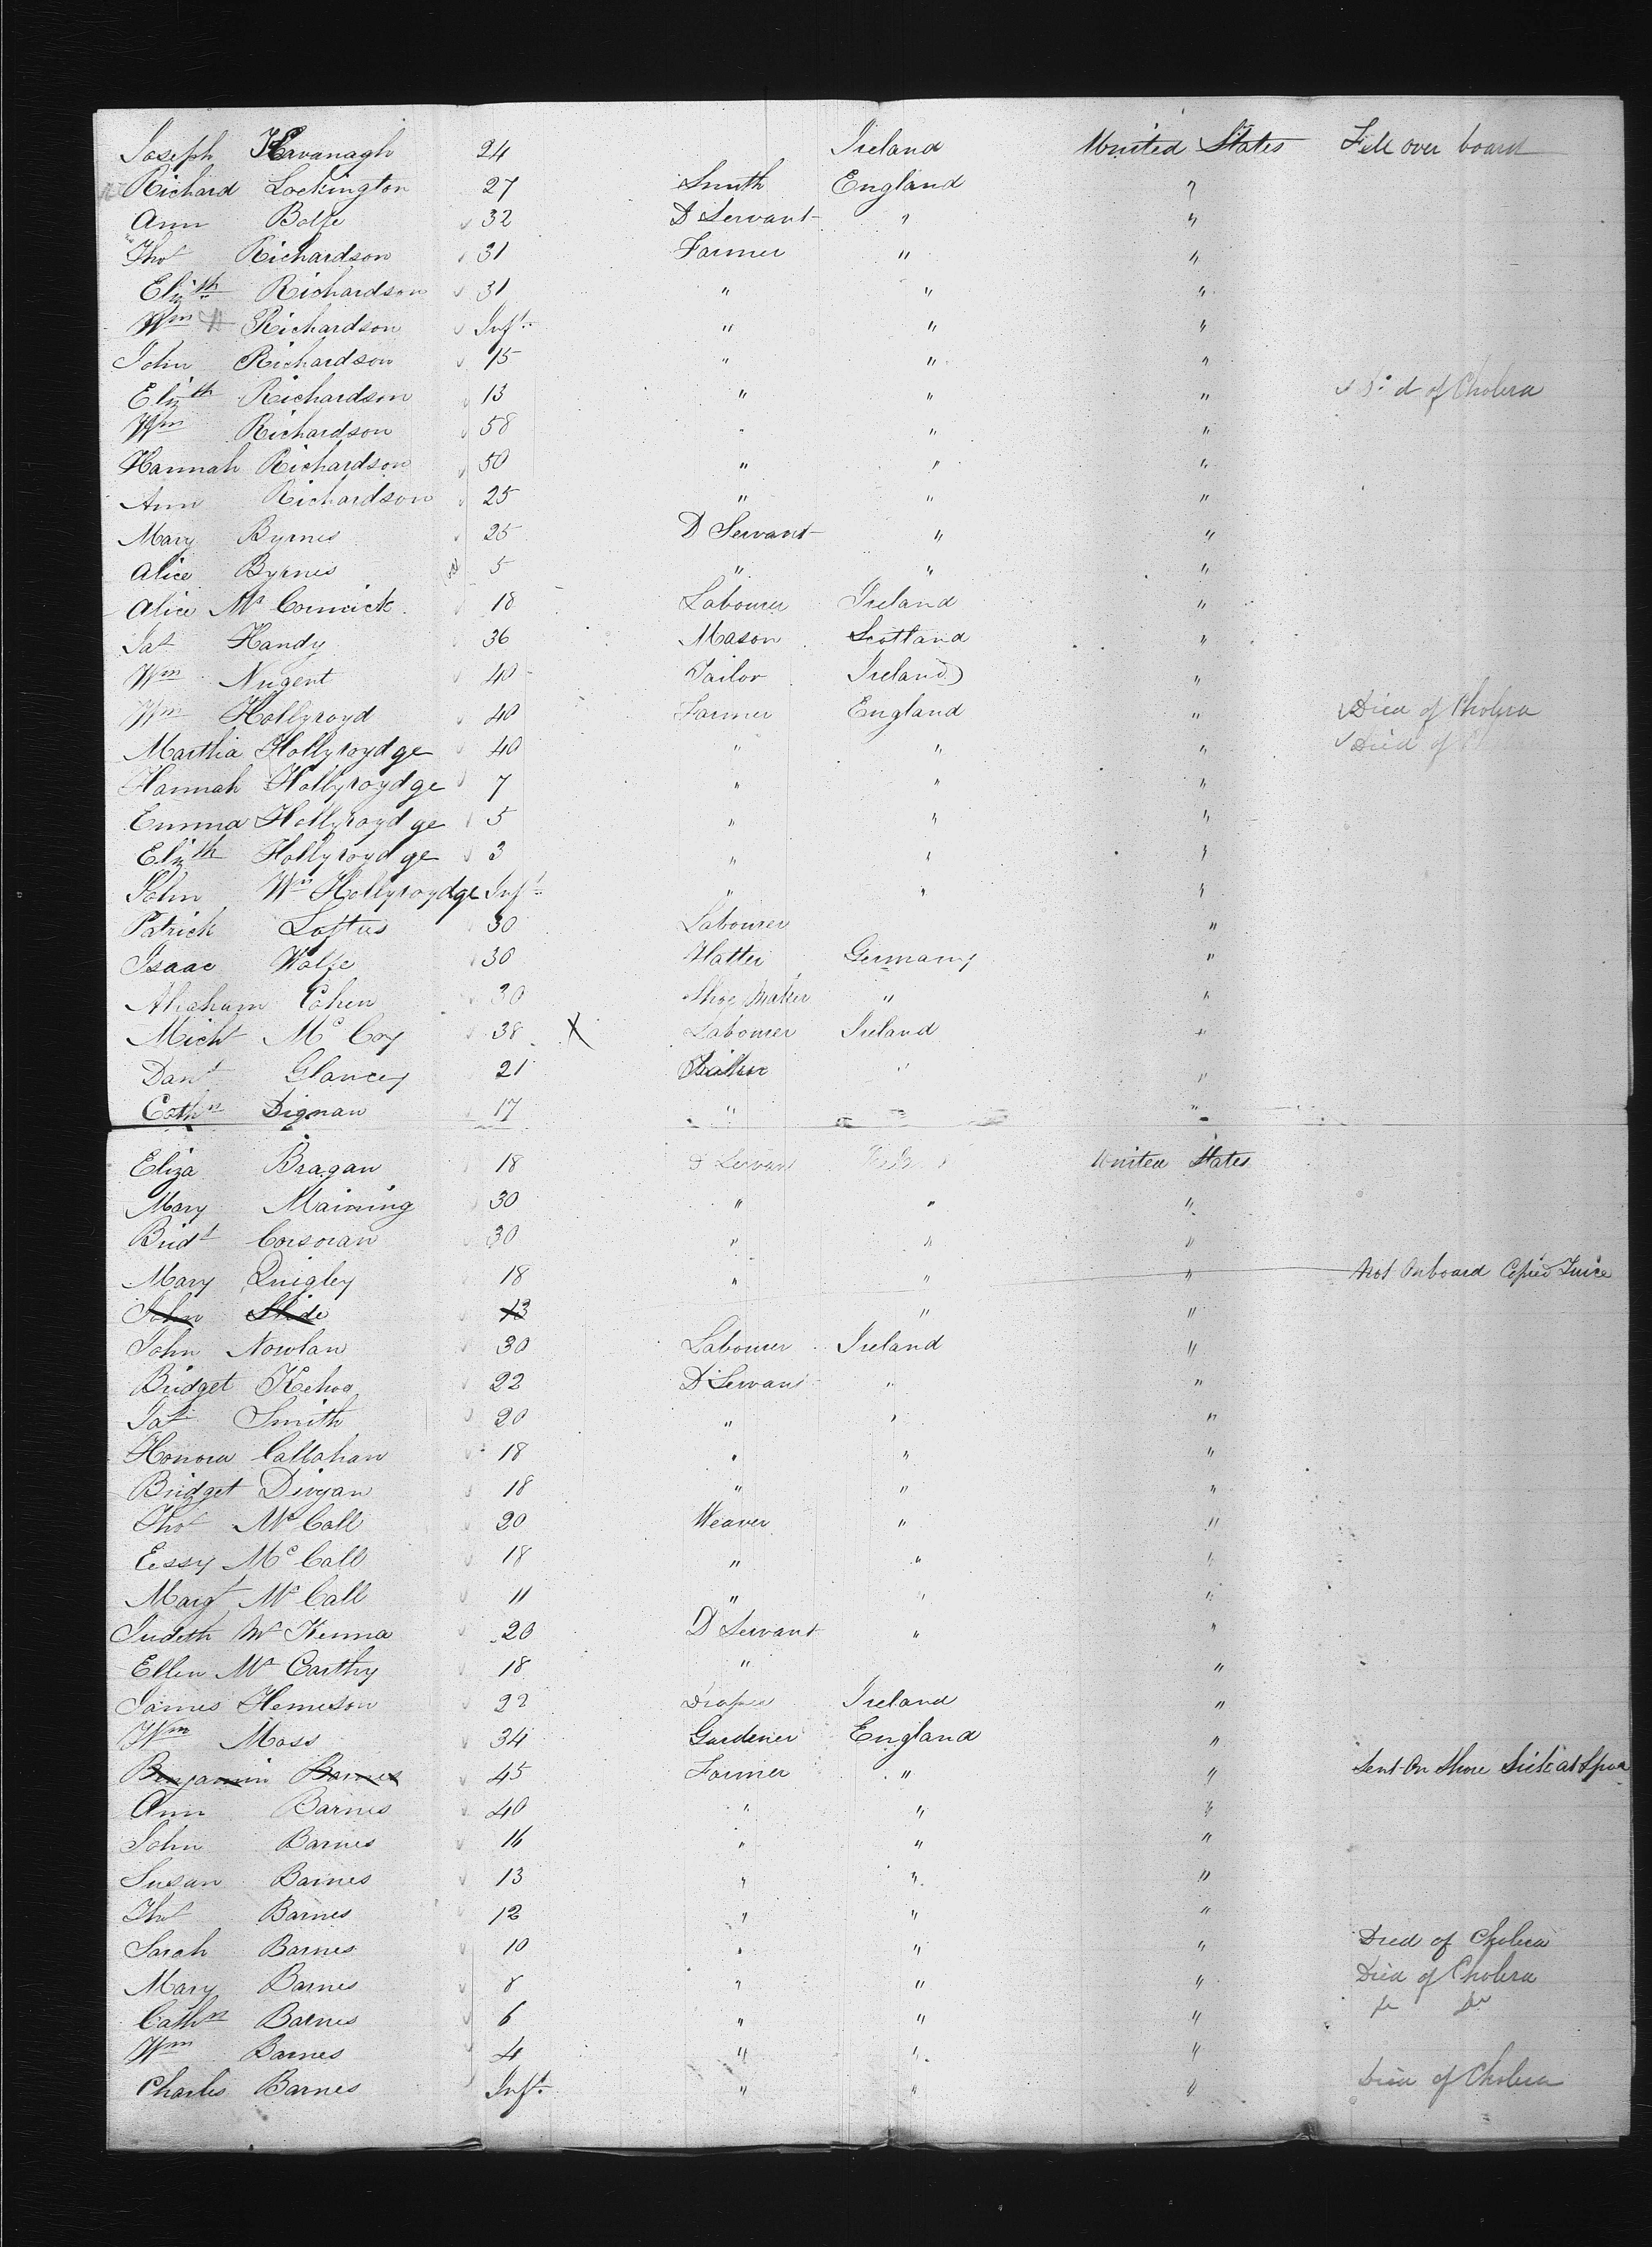 Joseph Kavanagh 24 Ireland United States Fell over board
Richard Lockington 27 Smith England "
Ann Bolfe 32 D Servant " "
Thos Richardson 31 Farmer " "
Elizth Richardson 31 " " "
Wm Richardson Inft " " "
John Richardson 15 " " "
Elizth Richardson 13 " " " Died of Cholera
Wm Richardson 58 " " "
Hannah Richardson 50 " " "
Ann Richardson 25 " " "
Mary Byrnes 25 D Servant " "
Alice Byrnes 5 " " "
Alice Mc Cormick 18 Labourer Ireland "
Jas Handy 36 Mason Scotland "
Wm Nugent 40 Tailor Ireland "
Wm Hollyroyd 40 Farmer England " Died of Cholera
Martha Hollyroydge 40 " " " Died of Cholera
Hannah Hollyroydge 7 " " "
Emma Hollyroydge 5 " " "
Elizth Hollyroydge 3 " " "
John Wm Hollyroydge Inft " " "
Patrick Loftus 30 Labourer "
Isaac Wolfe 30 Hatter Germany "
Abraham Cohen 30 Shoe Maker " "
Michl Mc Coy 38 X Labourer Ireland "
Danl Glancey 21 " "
Cathn Dignan 17 " " "
Eliza Bragan 18 D Servant United States
Mary Maining 30 " " "
Bridt Corsoran 30 " " "
Mary Quigley 18 " " " Not Onboard Copied Twice
John Slide 13 " "
John Nowlan 30 Labourer Ireland "
Bridget Kehoa 22 D Servant " "
Jas Smith 20 " " "
Honora Callahan 18 " " "
Bridget Divgan 18 " " "
Thos Mc Call 20 Weaver " "
Eessy Mc Call 18 " " "
Margt Mc Call 11 " " "
Judeth Mc Kenna 20 D Servant " "
Ellen Mc Carthy 18 " "
James Hemeson 22 Draper Ireland "
Wm Moss 34 Gardener England "
Benjamin Barnes 45 Farmer " " Sent On Shore Sick at
Ann Barnes 40 " " "
John Barnes 16 " " "
Susan Barnes 13 " " "
Thos Barnes 12 " " "
Sarah Barnes 10 " " " Died of Cholera
Mary Barnes 8 " " " Died of Cholera
Cathn Barnes 6 " " " Do Do
Wm Barnes 4 " " "
Charles Barnes Inft " " " Died of Cholera